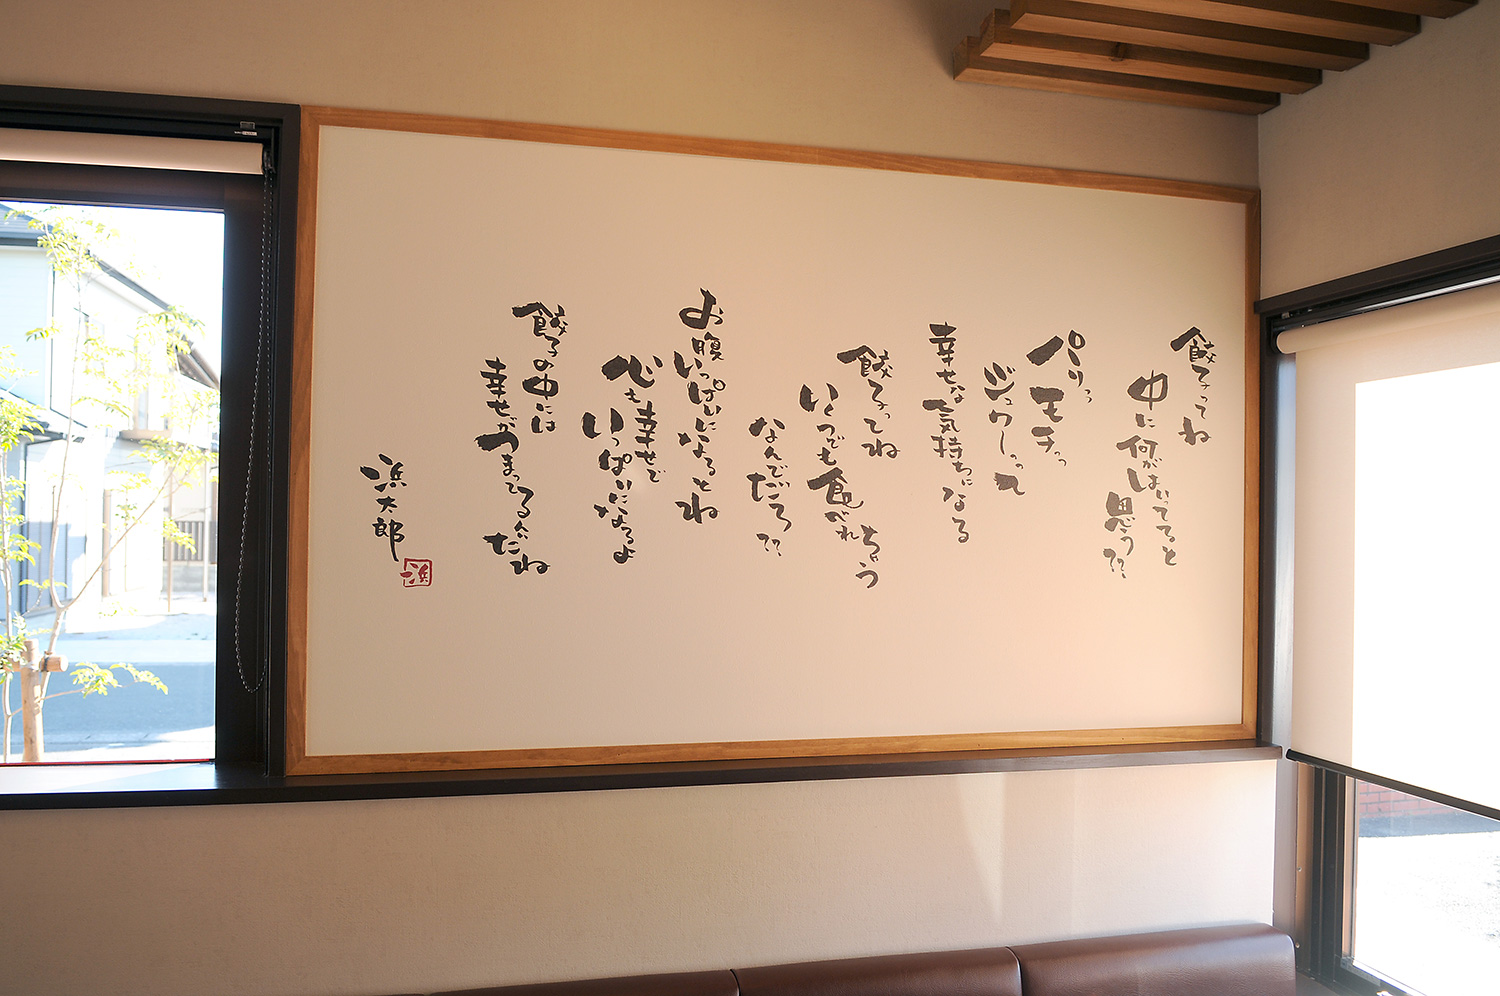 餃子ってね
中に何がはいってると
思う??
パリっっ
モチっっ
ジュワーっって
幸せな
気持ちになる
餃子ってね
いくつでも食べれ
ちゃう
なんでだろ??
お腹
いっぱいになるとね
心も幸せで
いっぱいになるよ
餃子の中には
幸せが
つまってるんだね
浜太郎
浜